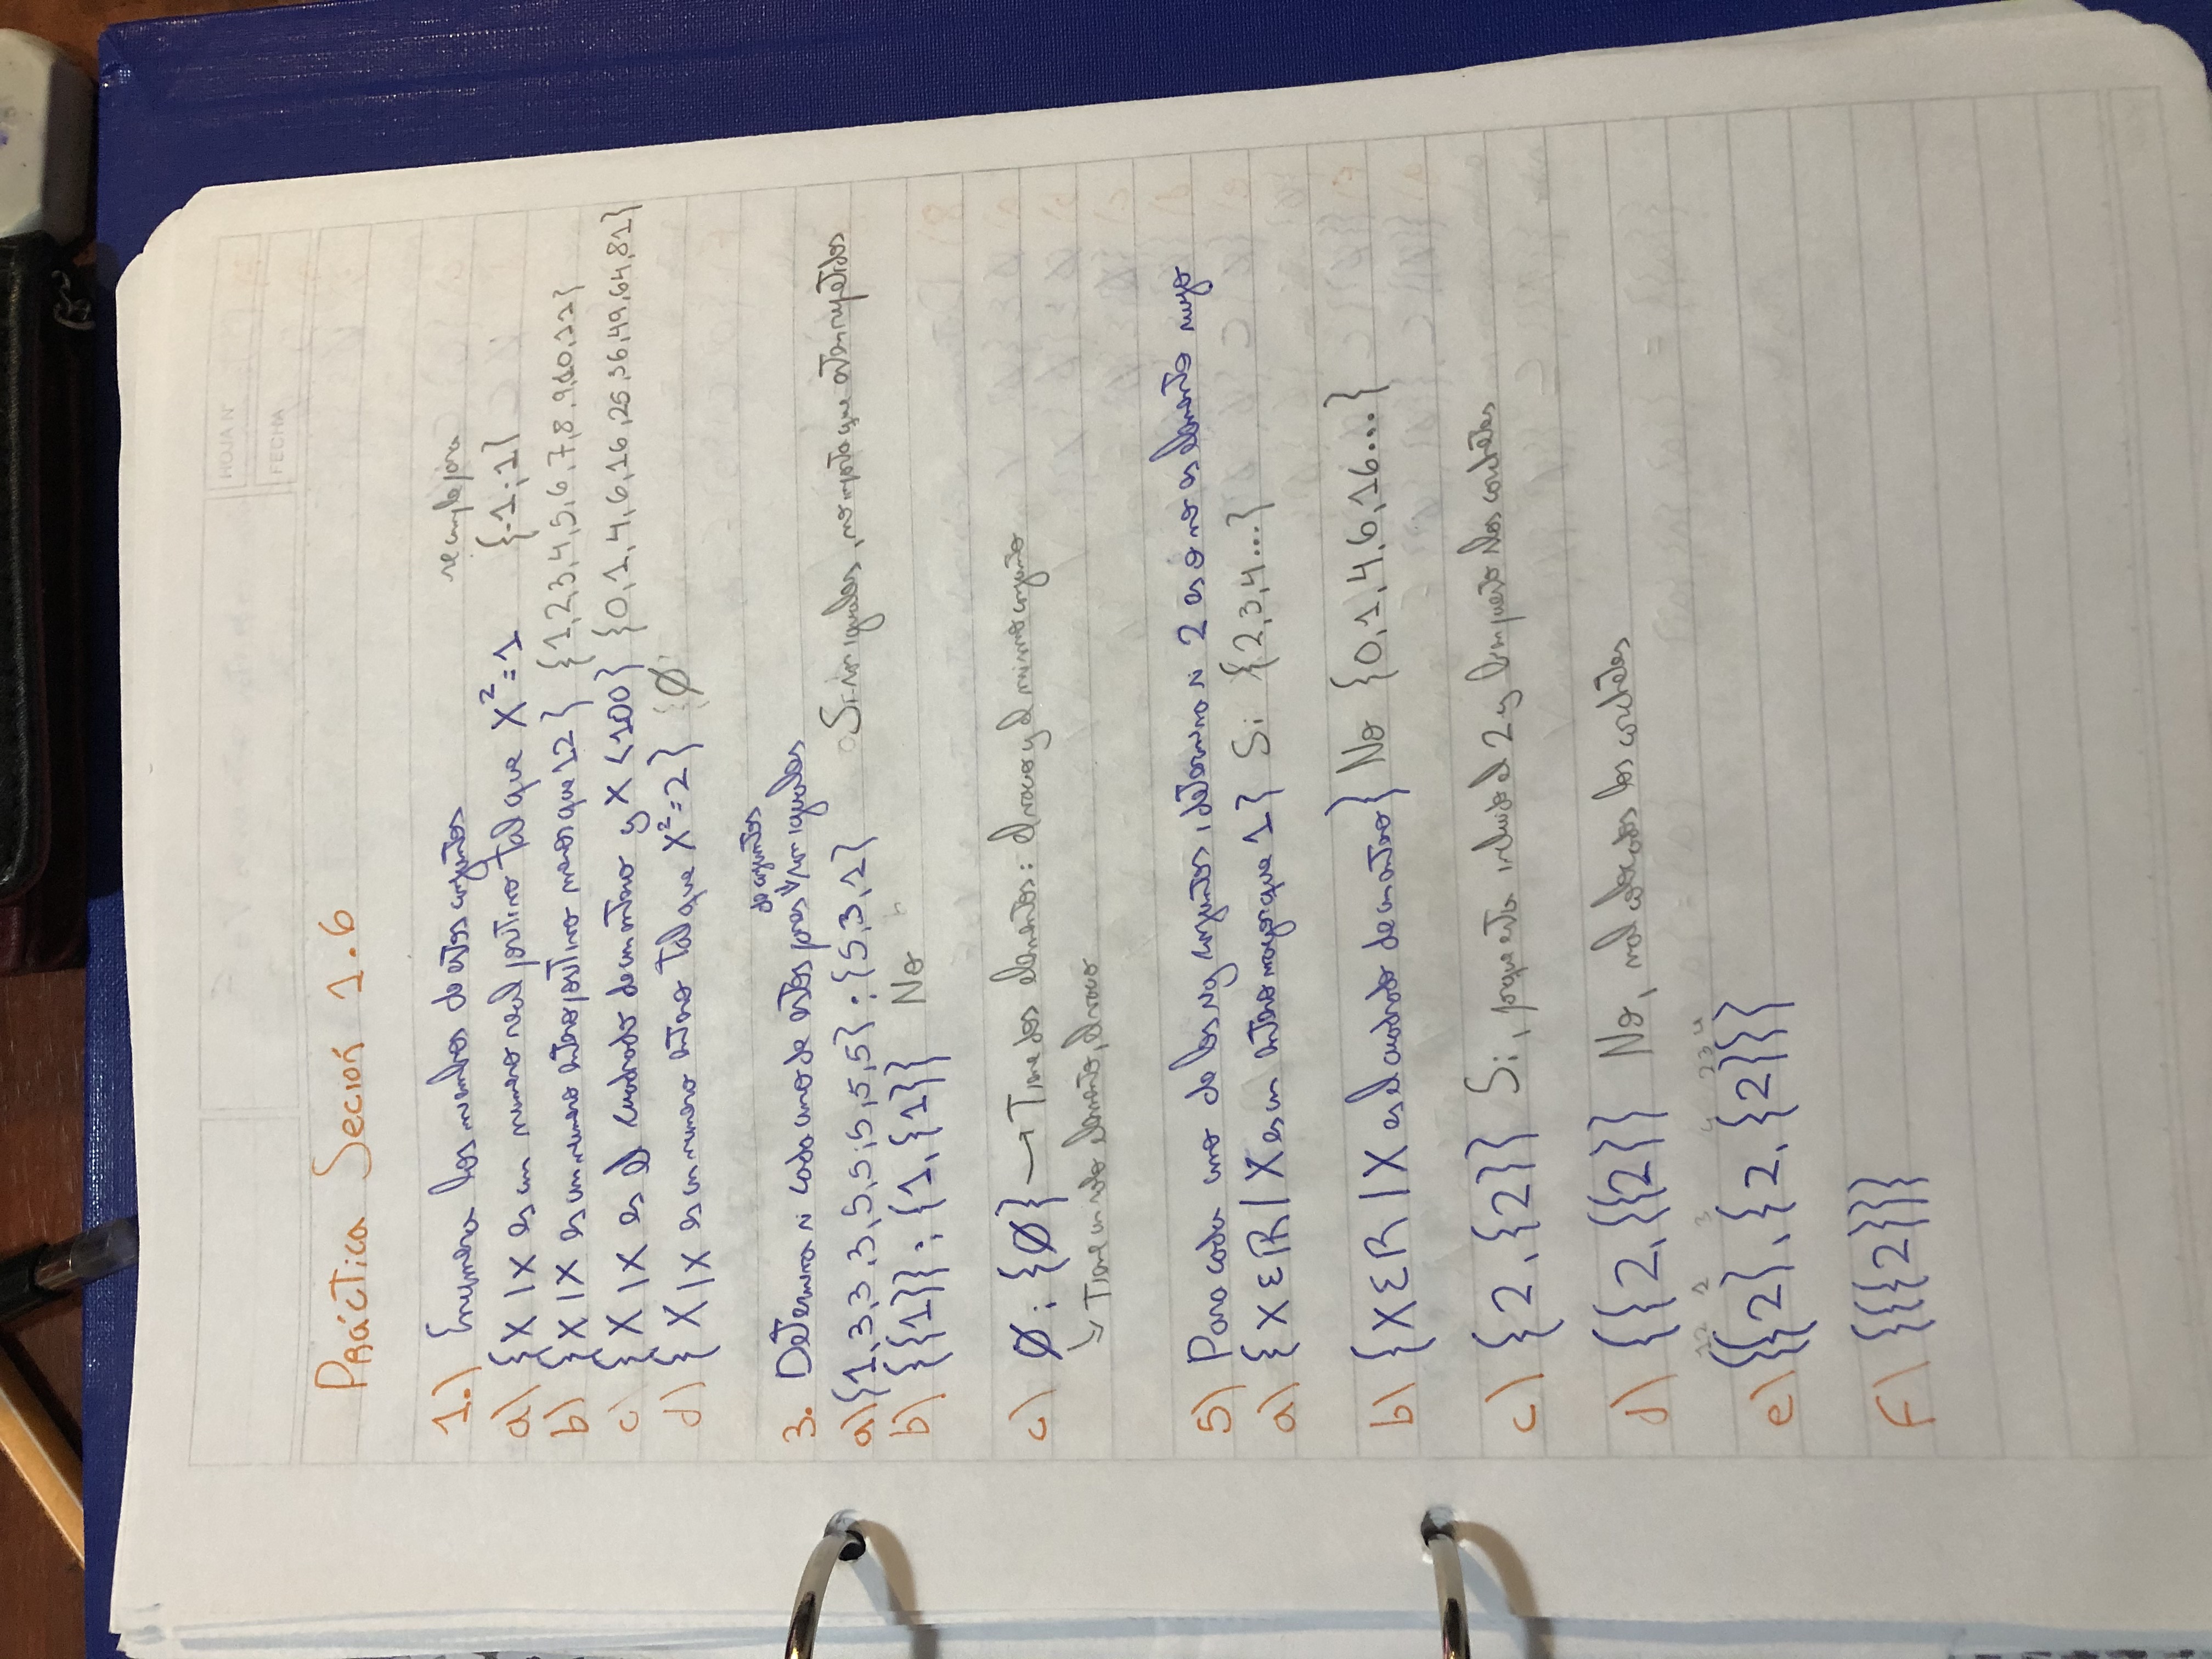 HOJA N°
FECHA
Práctica Seción 1.6
1.) Enumera los miembros de estos conjuntos
se cumple para
a) {X | X es un numero real positivo tal que X²=1 {-1; 1}
b) {X | X es un numero entero positivo menor que 12} {1,2,3,4,5,6,7,8,9,10,11}
c) {X | X es el cuadrado de un entero y X < 100} {0,1,4,6,16,25,36,49,64,81}
d) {X | X es un numero entero tal que X²=2} Ø
de conjuntos
3. Determina si cada uno de estos pares ↓ son iguales
a) {1,3,3,3,5,5,5,5,5} ; {5,3,1} Si son iguales, no importa que esten repetidos
b) {{1}} ; {1,{1}} No
c) Ø ; {Ø} → Tiene dos elementos: el vacio y el mismo conjunto
↳ Tiene un solo elemento, el vacio
5) Para cada uno de los sig conjuntos, determina si 2 es o no es elemento suyo
a) {X ∈ R | X es un entero mayor que 1} Si {2,3,4...}
b) {X ∈ R | X es el cuadrado de un entero} No {0,1,4,6,16...}
c) {2,{2}} Si, porque esta incluido el 2 y bien puesto los corchetes
d) {{2,{{2}} No, mal colocados los corchetes
12 1 3 4 2 3 4
e) {{2},{2,{2}}}
F) {{{2}}}